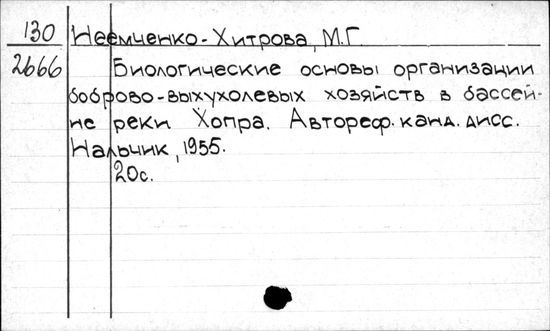 130 Неемченко-Хитрова, М.Г.
2666 Биологические основы организации
боброво-выхухолевых хозяйств в бассей-
не реки Хопра. Автореф. канд. дисс.
Нальчик, 1955.
20с.